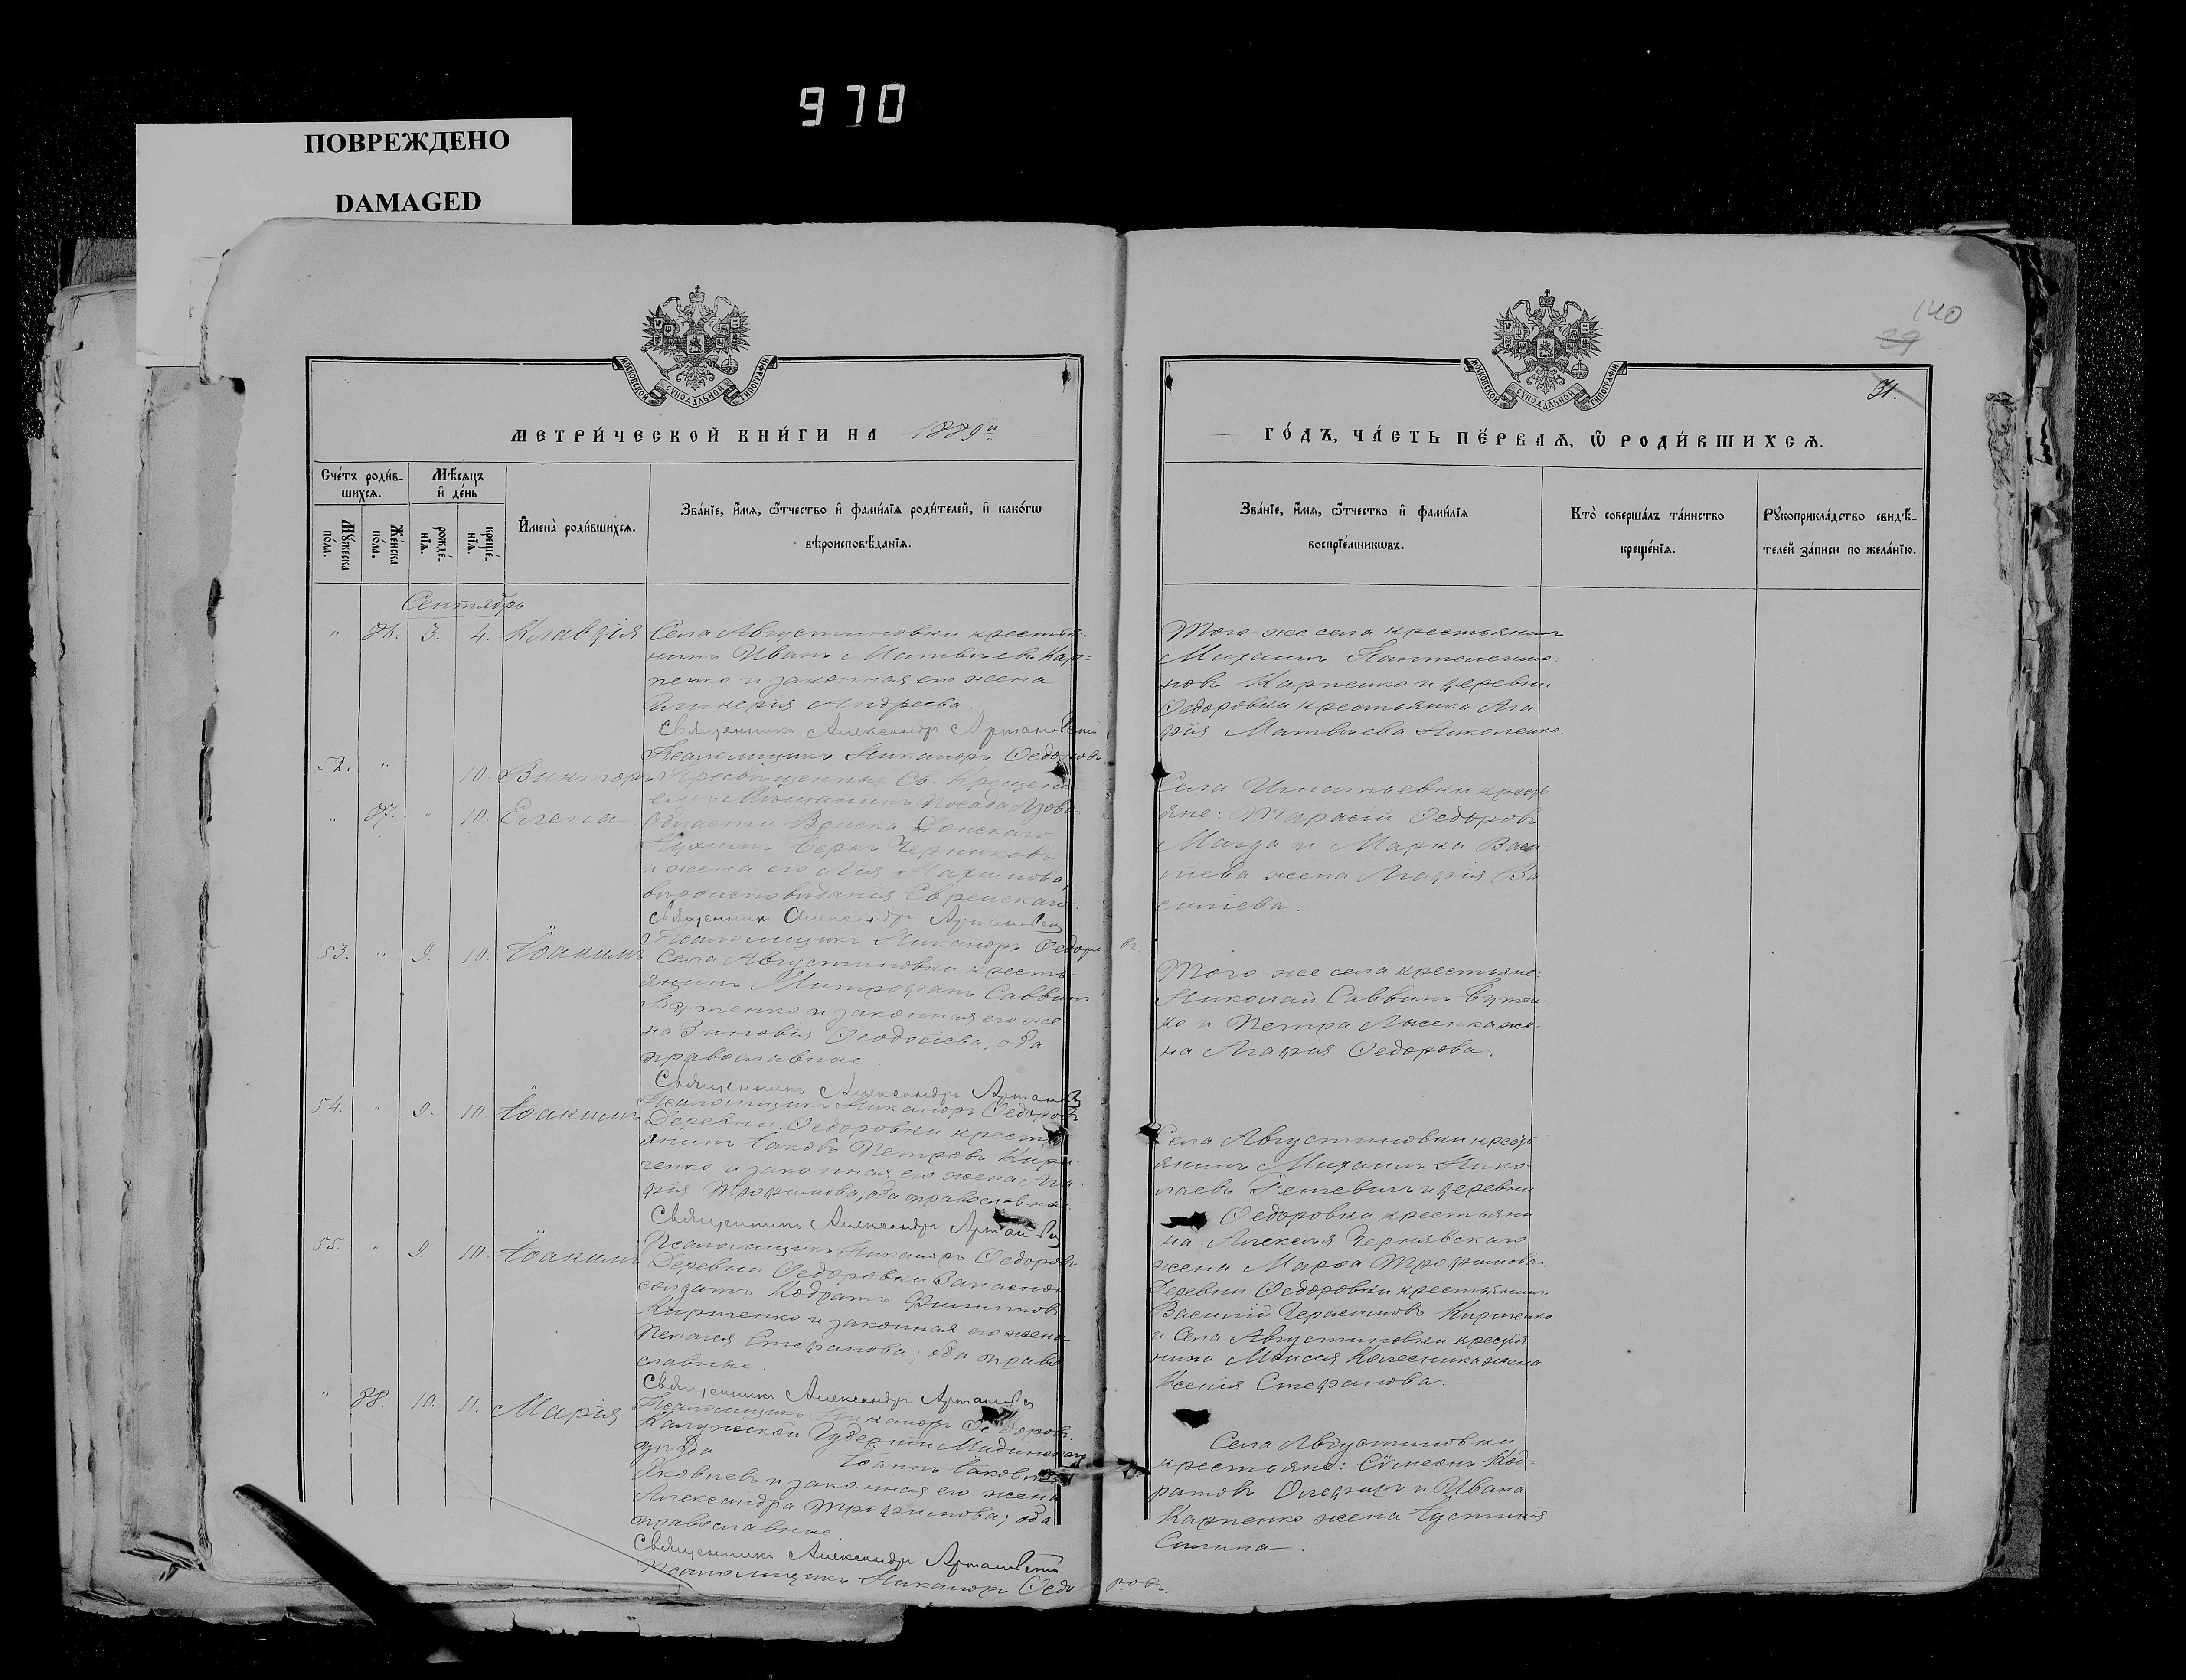 970
ПОВРЕЖДЕНО
DAMAGED
140
29
31.
МОСКОВСКОЙ СѴНОДАЛЬНОЙ ТИПОГРАФІИ
МОСКОВСКОЙ СѴНОДАЛЬНОЙ ТИПОГРАФІИ
МЕТРИ́ЧЕСКОЙ КНИ́ГИ НА 1889й
ГО́ДЪ, ЧА́СТЬ ПЕ́РВАѦ, Ѿ РОДИ́ВШИХСѦ.
Сче́тъ роди́в-
шихсѧ.
Мѣ́сѧцъ
и҆ де́нь
Мꙋ́жеска
по́ла.
Же́нска
по́ла.
рожде́-
нїѧ.
креще́-
нїѧ.
И҆мена̀ роди́вшихсѧ.
Зва́нїе, и҆́мѧ, ѻ҆́тчество и҆ фами́лїѧ роди́телей, и҆ како́гѡ
вѣроисповѣ́данїѧ.
Зва́нїе, и҆́мѧ, ѻ҆́тчество и҆ фами́лїѧ
воспрїе́мникѡвъ.
Кто̀ соверша́лъ та́инство
креще́нїѧ.
Рꙋкоприкла́дство свидѣ́-
телей за́писи по жела́нїю.
Сентябрь
" 86. 3. 4. Клавдія
Села Августиновки крестья-
нинъ Иванъ Матвѣевъ Кар-
пенко и законная его жена
Гликерія Андреева.
Священникъ Александръ
Псаломщикъ Никаноръ Ѳедоровъ
Того же села крестьянинъ
Михаилъ Пантелеимо-
новъ Карпенко и деревни
Ѳедоровки крестьянка Ага
ѳія Матвѣева Николенко.
52. " 10. Викторъ
" 87. " 10. Елена
Просвѣщенные Св. Крещені-
емъ Мѣщанинъ Посада Азова
Области Войска Донскаго
Беръ Черниковъ
и жена его Лія
вѣроисповѣданія Еврейскаго.
Священникъ Александръ
Псаломщикъ Никаноръ Ѳедоровъ
Села Игнатьевки кресть
яне: Тарасій Ѳедоровъ
Магда и Марка
жена Агаѳія Ва
силіева.
53. " 9. 10. Іоакимъ
Села Августиновки кресть-
янинъ Митрофанъ Саввинъ
Бутенко и законная его же
на Зиновія Ѳеодосіева, оба
православные
Священникъ Александръ
Псаломщикъ Никаноръ Ѳедоровъ
Того-же села крестьяне:
Николай Саввинъ Бутен-
ко и Петра Лысенка же-
на Агаѳія Ѳедорова.
54. " 9. 10. Іоакимъ
Деревни Ѳедоровки кресть
янинъ Іаковъ Петровъ Кири-
ченко и законная его жена Ага-
ѳія Трофимова, оба православные
Священникъ Александръ
Псаломщикъ Никаноръ Ѳедоровъ
Села Августиновки кресть
янинъ Михаилъ Нико-
лаевъ и деревни
Ѳедоровки крестьяни
на Алексія Чернявскаго
жена Марѳа Трофимова.
55. " 9. 10. Іоакимъ
Деревни Ѳедоровки Запасной
солдатъ Кодратъ Филиповъ
Кириченко и законная его жена
Пелагея Стефанова; оба право
славные.
Священникъ Александръ
Псаломщикъ Никаноръ Ѳедоровъ.
Деревни Ѳедоровки крестьянинъ
Василій Герасимовъ Кириченко
и Села Августиновки крестья
нина Моисея Колесника жена
Ксенія Стефанова.
" 88. 10. 11. Марія
Калужской Губерніи Мидинскаго
уѣзда Іоаннъ Іаковлевъ
Яковлевъ и законная его жена
Александра Трофимова; оба
православные
Священникъ Александръ
Псаломщикъ Никаноръ Ѳедоровъ.
Села Августиновки
крестьяне: Сѵмеонъ Код-
ратовъ и Ивана
Карпенко жена Іустинія